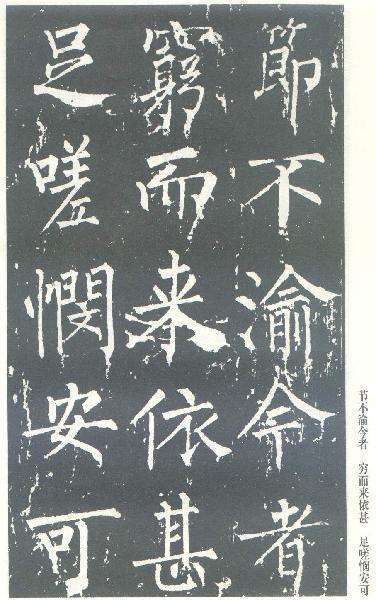 節不渝今者
窮而来依甚
足嗟憫安可
节不渝今者 穷而来依甚 足嗟悯安可